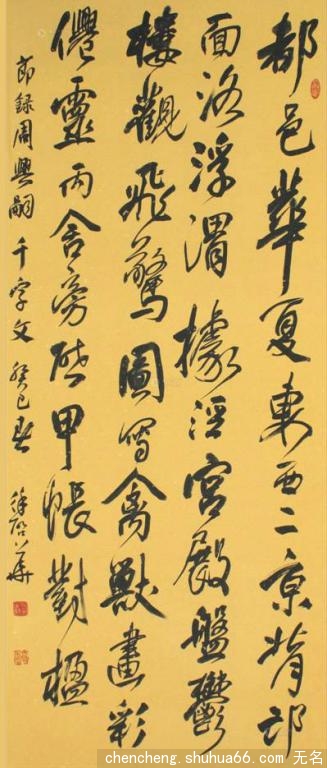 都邑華夏東西二京背邙
面洛浮渭據涇宮殿盤鬱
樓觀飛驚圖寫禽獸畫彩
僊靈丙舍旁啟甲帳對楹
節録周興嗣千字文癸巳春
徐啟華
chencheng.shuhua66.com 无名